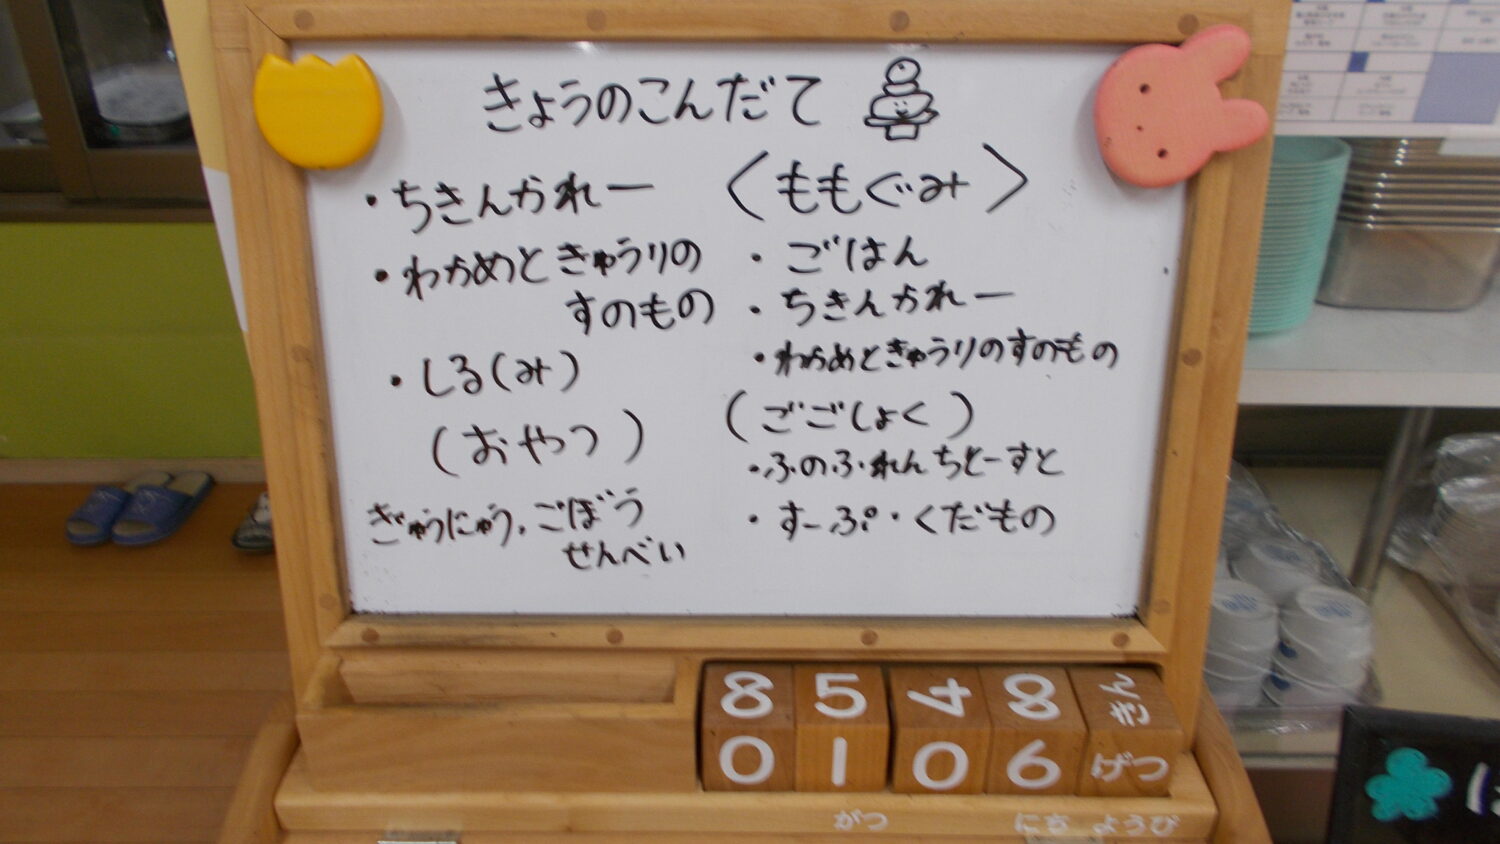 きょうのこんだて
・ちきんかれー
・わかめときゅうりの
すのもの
・しる(み)
(おやつ)
ぎゅうにゅう,ごぼう
せんべい
〈ももぐみ〉
・ごはん
・ちきんかれー
・わかめときゅうりのすのもの
(ごごしょく)
・ふのふれんちとーすと
・すーぷ・くだもの
8 5 4 8 きん
0 1 0 6 げつ
がつ にち ようび